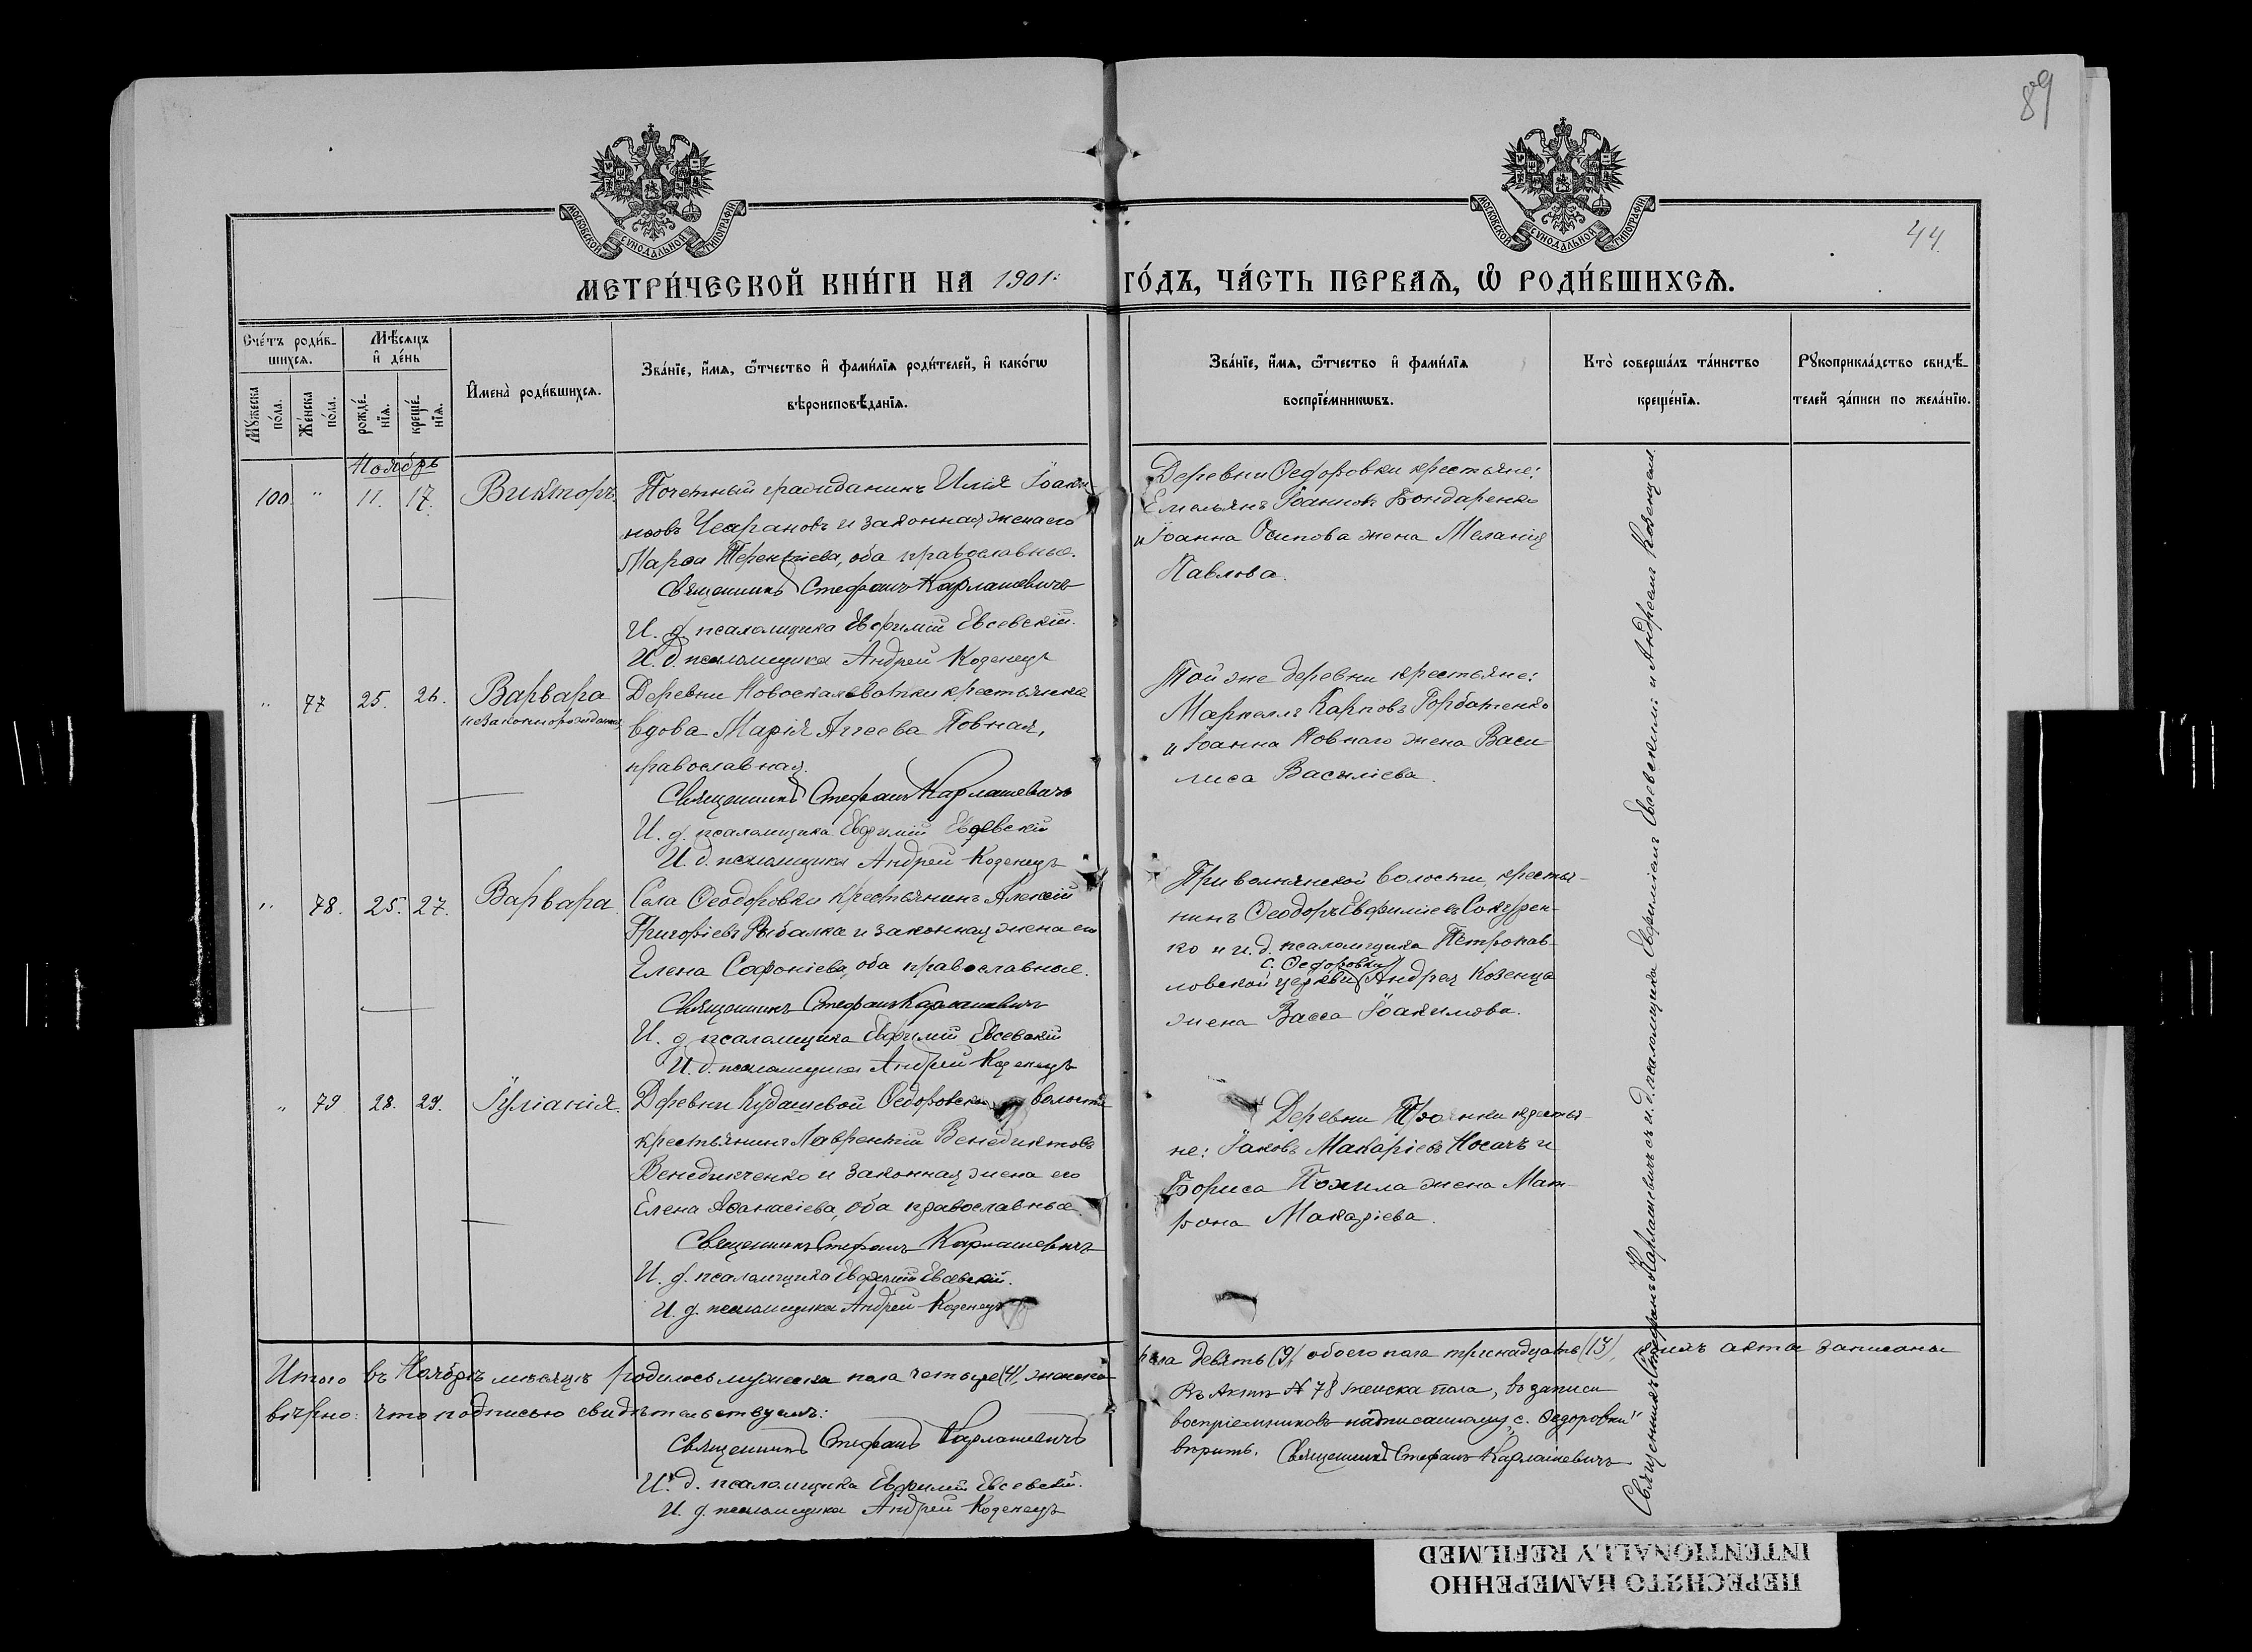 89
МОСКОВСКОЙ СѴНОДАЛЬНОЙ ТИПОГРАФІИ
МОСКОВСКОЙ СѴНОДАЛЬНОЙ ТИПОГРАФІИ
44
МЕТРИ́ЧЕСКОЙ КНИ́ГИ НА 1901: ГО́ДЪ, ЧА́СТЬ ПЕРВАѦ, Ѿ РОДИ́ВШИХСѦ.
Сче́тъ роди́в-
шихсѧ.
Мꙋжеска по́ла.
Же́нска по́ла.
Мѣ́сѧцъ
и҆ де́нь
рожде́-
нїѧ.
креще́-
нїѧ.
И҆мена̀ роди́вшихсѧ.
Зва́нїе, и҆́мѧ, ѻ҆́тчество и҆ фами́лїѧ роди́телей, и҆ како́гѡ
вѣроисповѣ́данїѧ.
Зва́нїе, и҆́мѧ, ѻ҆́тчество и҆ фами́лїѧ
воспрїе́мникѡвъ.
Кто̀ соверша́лъ та́инство
креще́нїѧ.
Рꙋкоприкла́дство свидѣ́-
телей за́писи по жела́нїю.
Ноябрь
100. " 11. 17. Викторъ
Почетный гражданинъ Илія Іоаки-
новъ Чаграновъ и законная жена его
Марѳа Терентіева, оба православные.
Священникъ Стефанъ Карлашевичъ
И. д. псаломщика Евфимій Евсевскій.
И. д. псаломщика Андрей Козенецъ
Деревни Ѳедоровки крестьяне:
Емельянъ Іоанновъ Бондаренко
и Іоанна Осипова жена Меланія
Павлова.
" 77 25. 26. Варвара
незаконнорожденная
Деревни Новоскалеватки крестьянка
вдова Марія Аггеева Повная,
православная.
Священникъ Стефанъ Карлашевичъ
И. д. псаломщика Евфимій Евсевскій
И. д. псаломщика Андрей Козенецъ
Той же деревни крестьяне:
Маркеллъ Карповъ Горбатенко
и Іоанна Повнаго жена Васи-
лиса Василіева.
" 78. 25. 27. Варвара.
Села Ѳеодоровки крестьянинъ Алексій
Григоріевъ Рыбалка и законная жена его
Елена Софоніева, оба православные.
Священникъ Стефанъ Карлашевичъ
И. д. псаломщика Евфимій Евсевскій
И. д. псаломщика Андрей Козенецъ
Привольнянской волости, крестья-
нинъ Ѳеодоръ Евфиміевъ Сокурен-
ко и и. д. псаломщика Петропав-
с. Ѳедоровки
ловской церкви Андрея Козенца
жена Васса Іоакимова.
" 79 28. 29. Іуліанія.
Деревни Кудашевой Ѳедоровской волости
крестьянинъ Лаврентій Венедиктовъ
Венедиченко и законная жена его
Елена Аѳанасіева, оба православные.
Священникъ Стефанъ Карлашевичъ
И. д. псаломщика Евфимій Евсевскій.
И. д. псаломщика Андрей Козенецъ
Деревни крестья-
не: Іаковъ Макаріевъ Носачъ и
Бориса Похила жена Мат-
рона Макаріева.
Священникъ Стефанъ Карлашевичъ съ и. д. псаломщика Евфиміемъ Евсевскимъ и Андреемъ Козенцемъ.
Итого въ Ноябрѣ мѣсяцѣ родилось мужеска пола четыре (4), женска пола девять (9), обоего пола тринадцать (13), коихъ акта записаны
вѣрно: что подписью свидѣтельствуемъ:
Священникъ Стефанъ Карлашевичъ
И. д. псаломщика Евфимій Евсевскій.
И. д. псаломщика Андрей Козенецъ
Въ Актѣ № 78 женска пола, въ записи
воспріемниковъ надписанному „с. Ѳедоровки"
вѣрить. Священникъ Стефанъ Карлашевичъ
ПЕРЕСНЯТО НАМЕРЕННО
INTENTIONALLY REFILMED